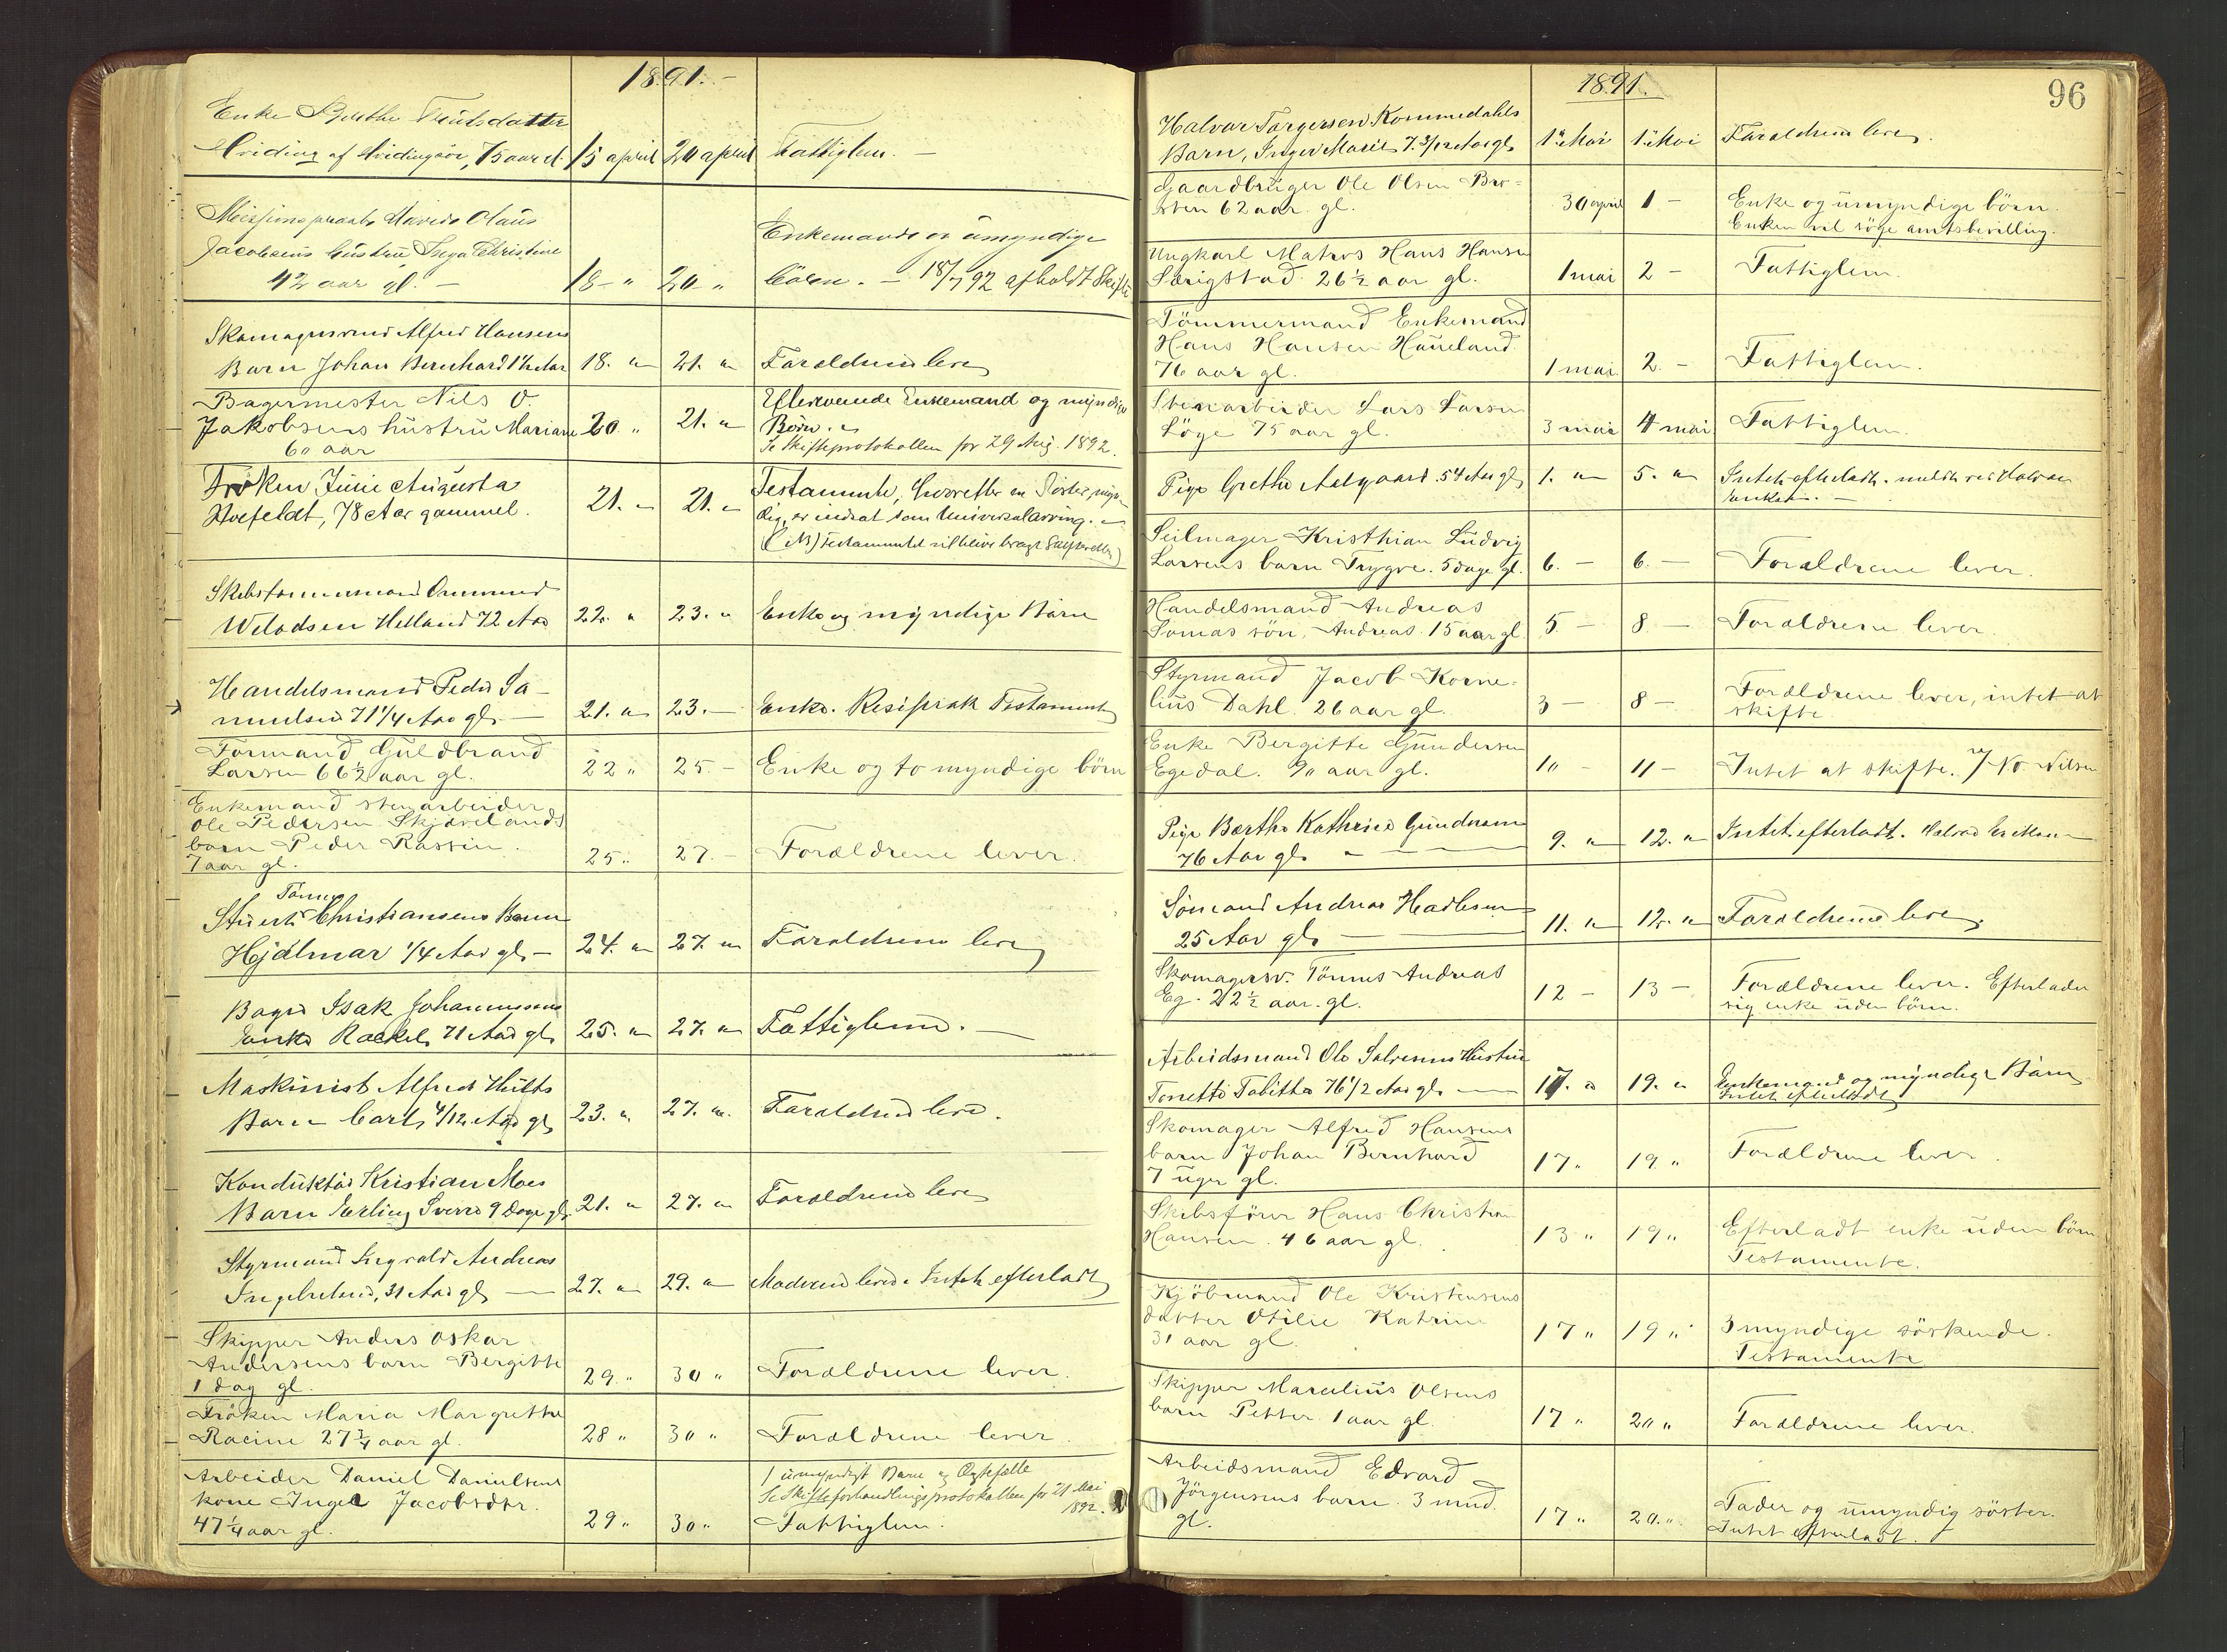 1891.-
Enke Berthe Truelsdatter
Hviding af Hvidingsöe, 75 aar gl. 15 april 20 april Fattiglem. —
Missionspræst Olaus
Jacobsens hustru Inga Christine
42 aar gl. — 18 " 20 " Enkemand og umyndige
börn. — 18/7 92 afholdt Skifte
Skomagersvend Alfred Hansens
Barn Johan Bernhard 18. " 21. " Forældrene lever
Bagermester Nils O.
Jakobsens hustru Mariane 20. " 21. " Efterlevende Enkemand og myndige
60 aar Börn. "
Se Skifteprotokollen for 29 Aug. 1892.
Fröken Julie Augusta
Hvefeldt, 78 Aar gammel. 21. " 21. " Testamente, hvorefter en Söster, myn-
dig, er indsat som Universalarving. "
(NB) Testamentet vil blive bragt Skifteretten)
Skibstømmermand Ommund
Helland 72 Aar 22. " 23. " Enke og myndige Börn
Handelsmand Peder Sa-
muelsen 71 1/4 Aar gl. — 21. " 23. — Enke. Resiprok Testament
Formand Guldbrand
Larsen 66 1/2 aar gl. 22 " 25. — Enke og to myndige börn
Enkemand stenarbeider
Ole Pedersen Skjævelands
barn Peder Rassin.
7 aar gl. 25 " 27. — Forældrene lever.
Tönnes
Stuert Christiansens Barn
Hjalmar 1/4 Aar gl. — 24. " 27. " Forældrene lever
Bager Isak Johannessens
Enke Rackel, 71 Aar gl. 25. " 27. " Fattiglem. —
Maskinist Alfred Hults
Barn Carl, 4/12 Aar gl. 23. " 27. " Forældrene lever.
Konduktör Kristian Moes
Barn Erling Sverre 9 Dage gl. 21. " 27. " Forældrene lever
Styrmand Ingvald Andreas
Ingebretsen, 31 Aar gl. — 27. " 29. " Moderen lever. Intet efterladt
Skipper Anders Oskar
Andersens barn Bergitte
1 dag gl. 29. " 30 " Forældrene lever.
Fröken Maria Margrethe
Racine 27 1/4 aar gl. 28 " 30 " Forældrene lever.
Arbeider Daniel Danielsens
kone Inger Jacobsdtr.
47 1/4 aar gl. 29 " 30 " 1 umyndigt Barn og Ægtefælle
Se Skifteforhandlingsprotokollen for 21 Mai
1892.
Fattiglem.
96
1891.
Halvor Torgersen Kommedahls
Barn, Inger Marie 7 3/12 Aar gl. 1. Mai 1. Mai Forældrene lever.
Gaardbruger Ole Olsen Bro-
sten 62 aar gl. 30 april 1 — Enke og umyndige börn.
Enken vil söge amtsbevilling.
Ungkarl Matros Hans Hansen
Særigstad 26 1/2 aar gl. 1 mai 2 — Fattiglem.
Tömmermand Enkemand
Hans Hansen Haueland
76 aar gl. 1 mai 2. — Fattiglem.
Stenarbeider Lars Larsen
Löge 75 aar gl. 3 mai 4 mai Fattiglem.
Pige Grethe Aalgaard 54 Aar gl. 1. " 5. " Intet efterladt. meldt ved Halvor
Seilmager Kristhian Ludvig
Larsens barn Trygve. 5 dage gl. 6. — 6. — Forældrene lever.
Handelsmand Andreas
Sömas sön, Andreas. 15 aar gl. 5. — 8 — Forældrene lever.
Styrmand Jacob Korne-
lius Dahl. 26 aar gl. 3 — 8 — Forældrene lever, intet at
skifte.
Enke Bergitte Gundersen
Egedal. 90 aar gl. 10 — 11 — Intet at skifte. Nilsen
Pige Barthe Kathrine Gundersen
76 Aar gl. 9. " 12. " Intet efterladt.
Sömand Andreas
25 Aar gl. — 11. " 12. " Forældrene lever.
Skomagersv. Tönnes Andreas
Eg. 22 1/2 aar. gl. 12 — 13 — Forældrene lever. Efterlader
sig enke uden börn.
Arbeidsmand Ole Salvesens Hustru
Tonette Tabitha 76 1/2 Aar gl. — 17. " 19. " Enkemand og myndige Börn
Intet efterladt
Skomager Alfred Hansens
barn Johan Bernhard
7 uger gl. 17 " 19. " Forældrene lever.
Skibsförer Hans Christian
Hansen. 46 aar gl. 13 " 19 " Efterladt enke uden börn
Testamente.
Kjöbmand Ole Kristensens
datter Otilie Katrine
31 aar gl. 17 " 19 " 3 myndige söskende.
Testamente
Skipper Marcelius Olsens
barn Petter. 1 aar gl. 17 " 20 " Forældrene lever.
Arbeidsmand Edvard
Jörgensens barn. 3 mnd.
gl. 17 " 20. " Fader og umyndig söster.
Intet efterladt.